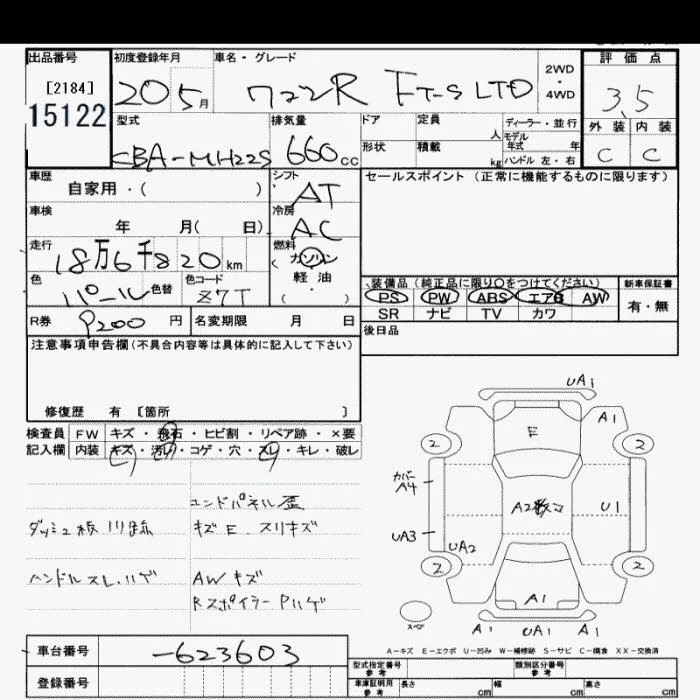 出品番号
[2184]
15122
初度登録年月
20 5 月
車名・グレード
ワゴンR FT-S LTD
2WD
・
4WD
評価点
3.5
外装 内装
C C
型式
CBA-MH22S
排気量
660 cc
ドア
形状
定員
人
積載
kg
ディーラー・並行
モデル
年式 年
ハンドル 左・右
車歴
自家用・( )
シフト
AT
車検
年 月( 日)
冷房
AC
走行
18万6千820 km
燃料
ガソリン
軽油
( ・ )
色
パール 色替
色コード
Z7T
R券
P200 円
名変期限 月 日
セールスポイント (正常に機能するものに限ります)
装備品 (純正品に限り○をつけてください)
PS PW ABS エアB AW
SR ナビ TV カワ
新車保証書
有・無
後日品
注意事項申告欄(不具合内容等は具体的に記入して下さい)
修復歴 有 [箇所 ]
検査員
記入欄
FW キズ・飛石・ヒビ割・リペア跡・×要
内装 キズ・汚レ・コゲ・穴・スレ・キレ・破レ
エンドパネル歪
キズE スリキズ
ハンドルスレ、ハゲ
AWキズ
RスポイラーPハゲ
UA1
A1
E
2 2
カバー
A4
A2
U1
UA3
UA2
2 2
A1
スペア
A1 UA1 A1
A-キズ E-エクボ U-凹み W-補修跡 S-サビ C-腐食 XX-交換済
車台番号
-623603
登録番号
型式指定番号
参考
類別区分番号
参考
車庫証明用
参考
長さ cm
幅 cm
高さ cm